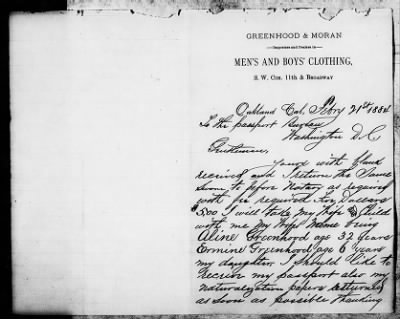 GREENHOOD & MORAN
Importers and Dealers in
MEN'S AND BOYS' CLOTHING,
S. W. Cor. 11th & Broadway
Oakland Cal, Febry 21st 1884
To the passport Bureau
Washington D.C
Gentlemen,
Yours with blank
received and I return the Same
Sworn to before Notary as required
with fee required Five Dollars
$5.00 I will take My Wife & Child
with me My Wifes Name being
Aline Greenhood age 32 years
Ermine Greenhood age 6 years
my daughter. I Should like to
receive my passport also my
Naturalyzation papers returned
as soon as possible thanking